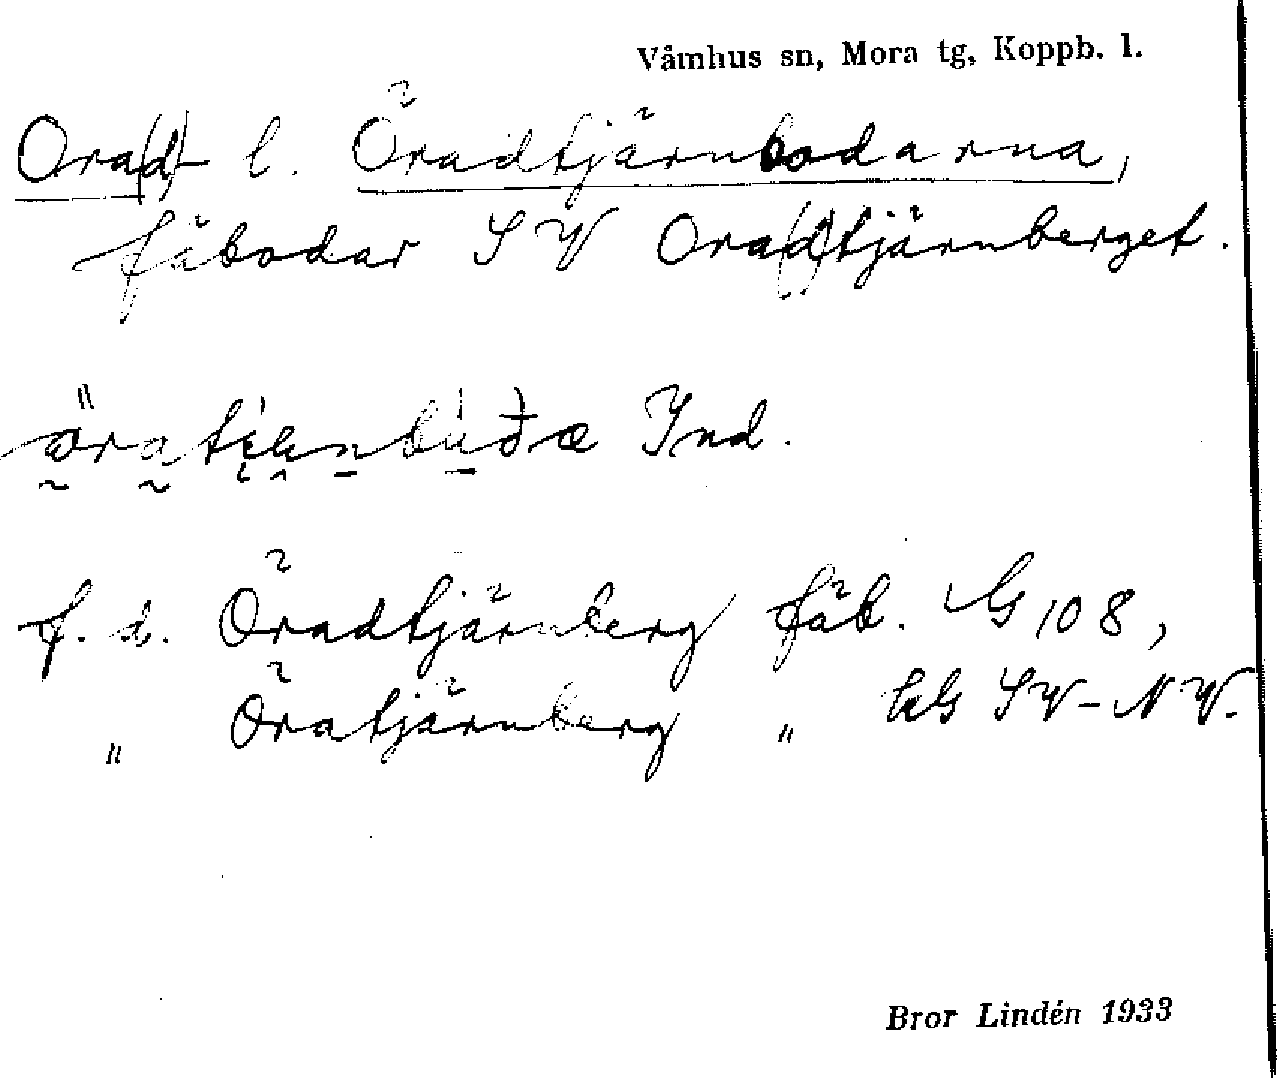 Våmhus sn, Mora tg, Koppb. l.
Ora(d)- l. Öradtjärnbodarna,
fäbodar SV Ora(d)tjärnberget.
Ind.
f. d. Öradtjärnberg fäb. G 108,
" Öratjärnberg " SV-NV.
Bror Lindén 1933